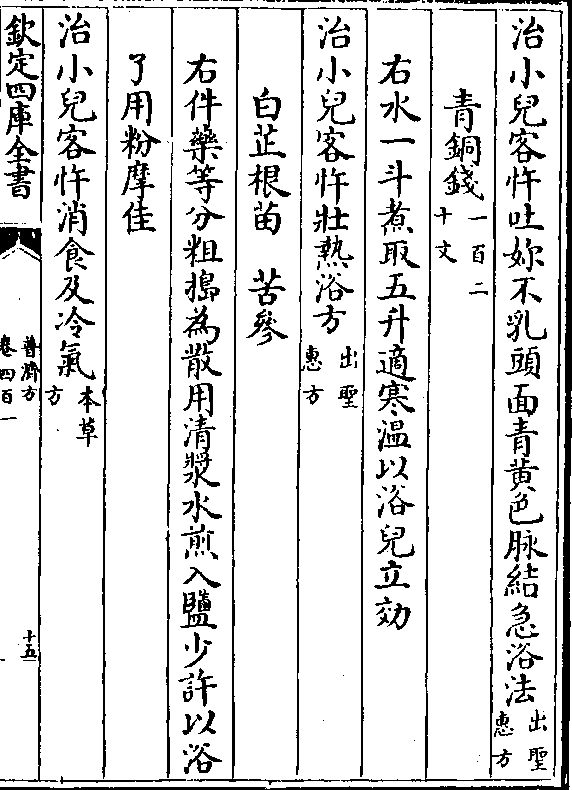 治小兒客忤吐妳不乳頭面青黄色脉結急浴法出聖惠方
青銅錢一百二十文
右水一斗煮取五升適寒温以浴兒立効
治小兒客忤壯熱浴方出聖惠方
白芷根苗　苦參
右件藥等分粗搗為散用清漿水煎入鹽少許以浴
了用粉摩佳
治小兒客忤消食及冷氣本草方
欽定四庫全書
普濟方
卷四百一
十五